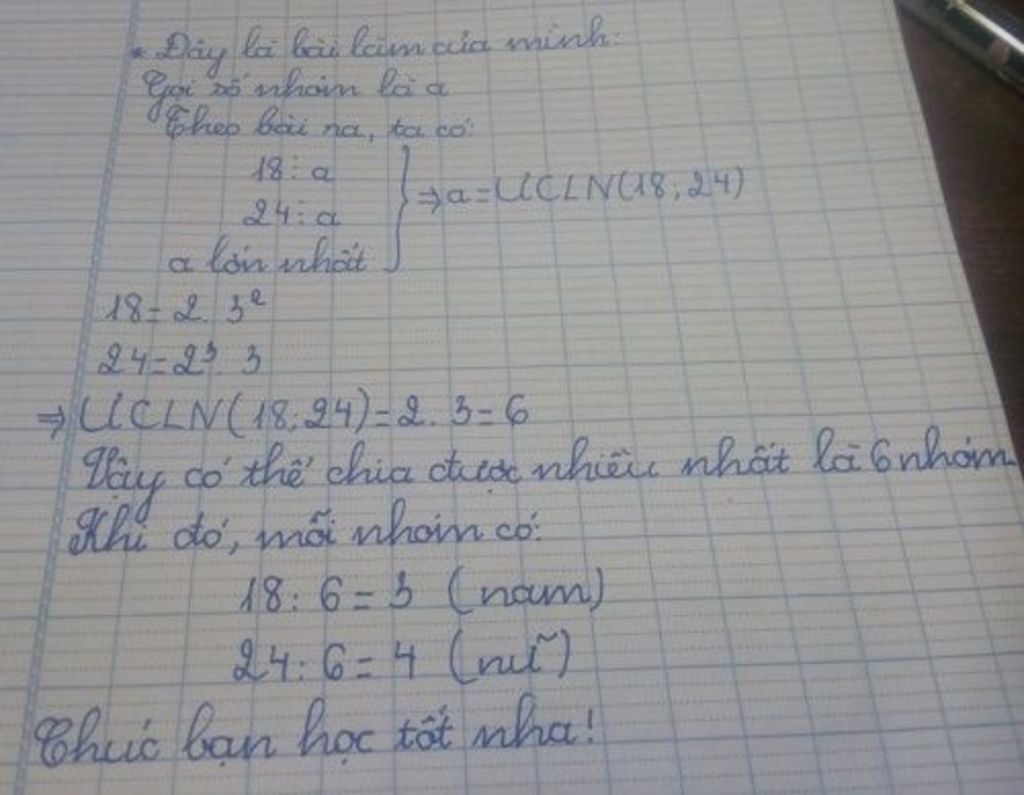 * Đây là bài làm của mình:
Gọi số nhóm là a
Theo bài ra, ta có:
18 ⋮ a
24 ⋮ a
a lớn nhất
} ⇒ a = ƯCLN(18; 24)
18 = 2 . 3²
24 = 2³ . 3
⇒ ƯCLN(18; 24) = 2. 3 = 6
Vậy có thể chia được nhiều nhất là 6 nhóm.
Khi đó, mỗi nhóm có:
18 : 6 = 3 (nam)
24 : 6 = 4 (nữ)
Chúc bạn học tốt nha!